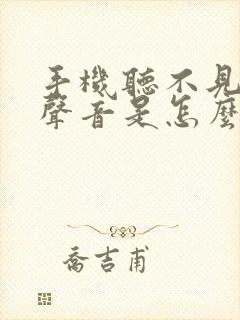 手機聽不見
聲音是怎麼
喬吉甫